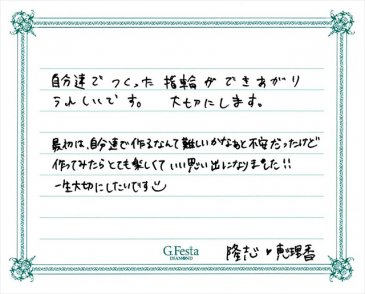 自分達でつくった指輪ができあがり
うれしいです。 大切にします。
最初は、自分達で作るなんて難しいかなぁと不安だったけど
作ってみたらとても楽しくていい思い出になりました!!
一生大切にしたいです
G.Festa
DIAMOND
隆志♥恵理香